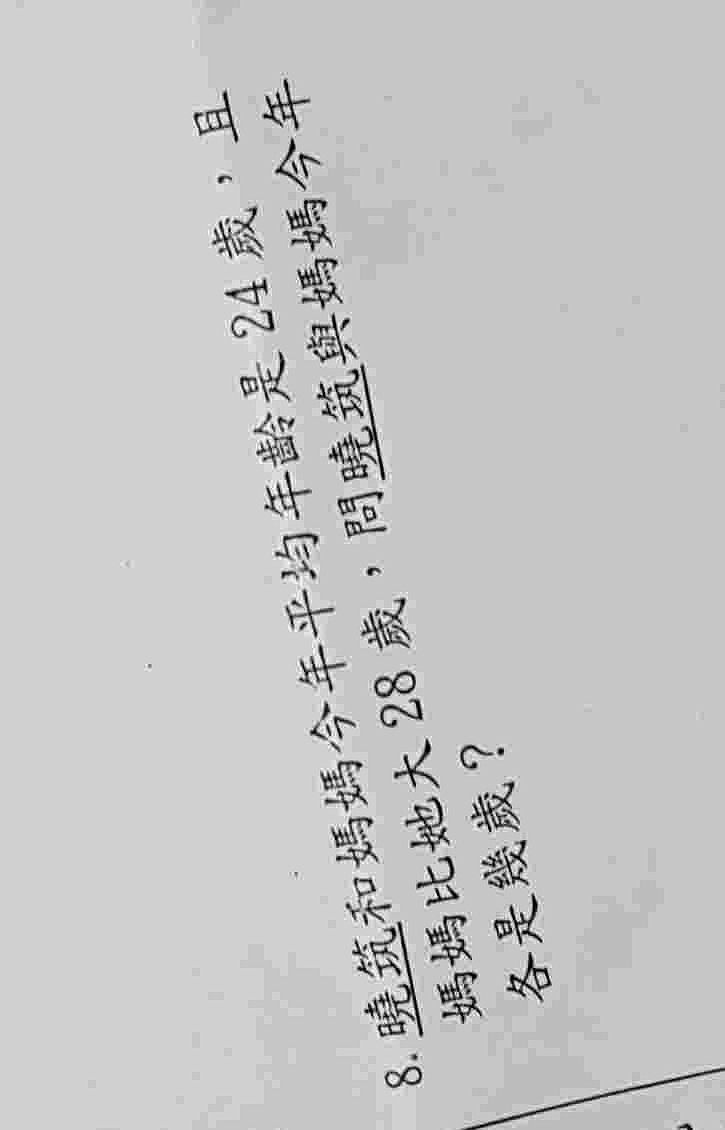 8. 曉筑和媽媽今年平均年齡是 24 歲，且
媽媽比她大 28 歲，問曉筑與媽媽今年
各是幾歲？